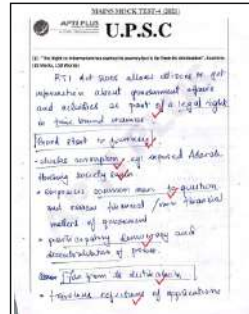 MAINS MOCK TEST-4 (2021)
APTI PLUS
U.P.S.C
Q2. "The Right to Information has started its journey but is far from its destination". Examine.
(10 Marks, 150 Words)
RTI Act 2005 allows citizens to get
information about government affairs
and activities as part of a legal right
in time bound manner.
Good start to journey
corruption eg exposed Adarsh
Housing society scam
• empowers common man to question
and reasons financial / non financial
matters of government
• participatory democracy and
decentralisation of power.
far from its destination
• frivolous rejections of applications